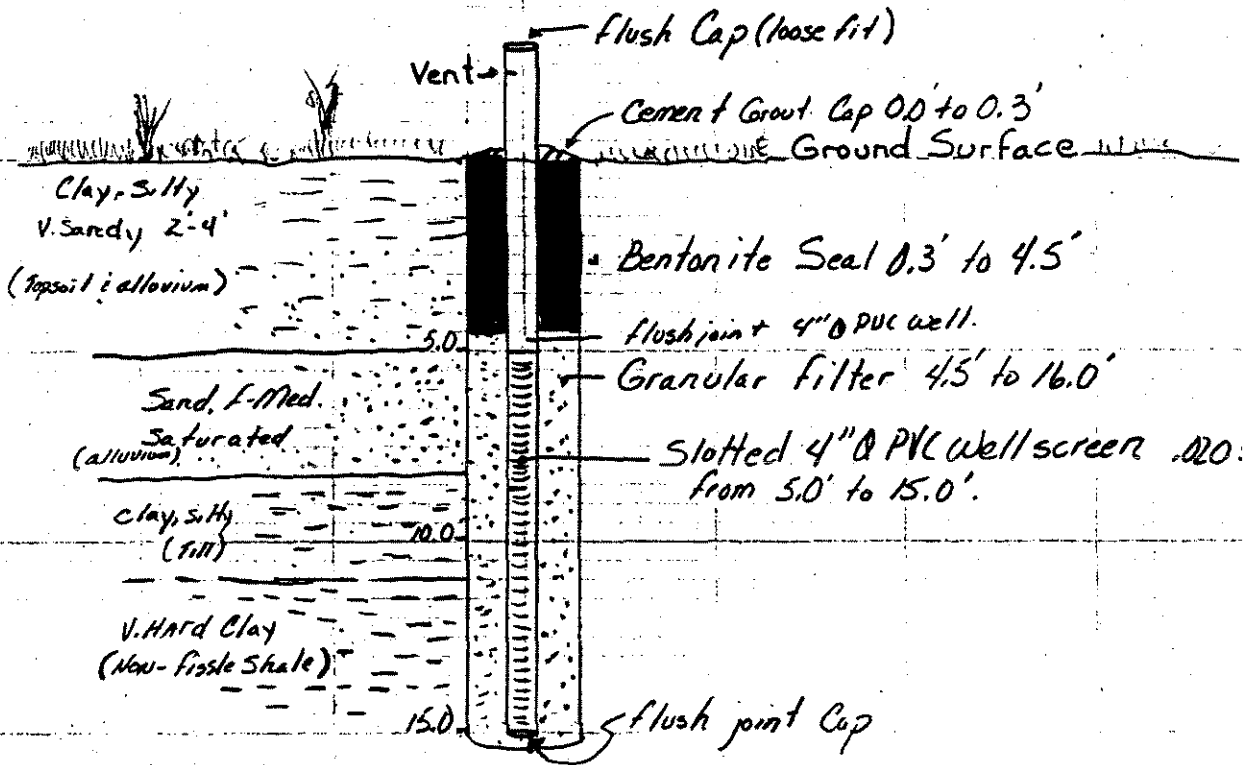 flush Cap (loose fit)
Vent
Cement Grout Cap 0.0' to 0.3'
Ground Surface
Clay, Silty
V. Sandy 2'-4'
(Topsoil & alluvium)
Bentonite Seal 0.3' to 4.5'
flush joint 4"Ø PVC well.
5.0
Granular filter 4.5' to 16.0'
Sand, f-Med.
Saturated
(alluvium)
Slotted 4"Ø PVC well screen .020
from 5.0' to 15.0'.
Clay, silty
(Till)
10.0
V. HARD Clay
(Non-fissle Shale)
15.0
flush joint Cap